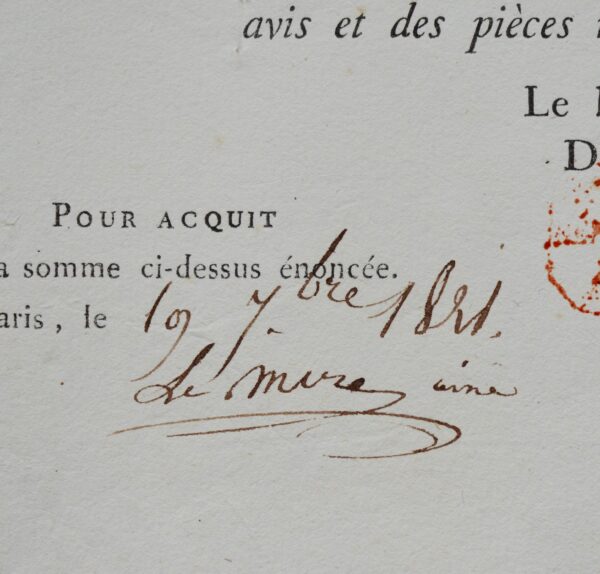 avis et des pièces
Le
D
POUR ACQUIT
a somme ci-dessus énoncée.
aris, le 19 7.bre 1821.
Le mire ainé